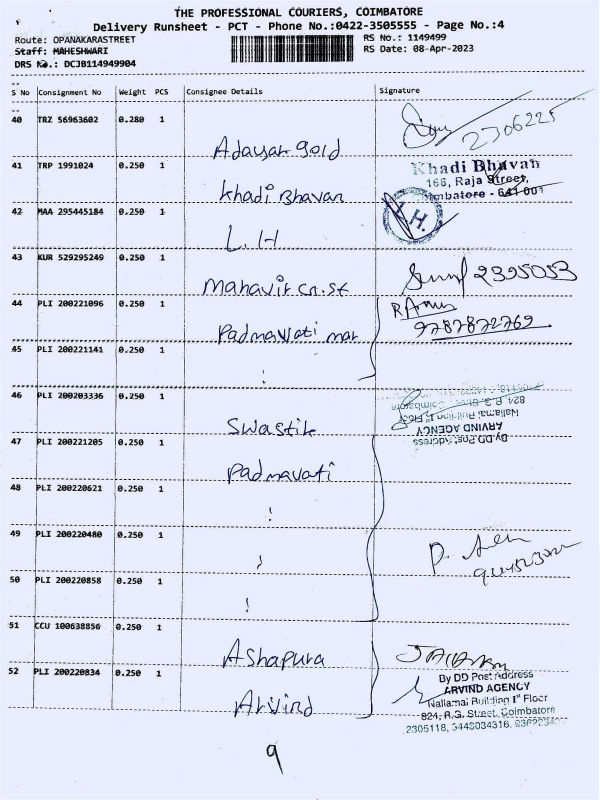 THE PROFESSIONAL COURIERS, COIMBATORE
Delivery Runsheet - PCT - Phone No.:0422-3505555 - Page No.:4
Route: OPANAKARASTREET
RS No.: 1149499
Staff: MAHESHWARI
RS Date: 08-Apr-2023
DRS No.: DCJB114949904
S No Consignment No Weight PCS Consignee Details Signature
40 TRZ 56963602 0.280 1
Adayar gold
2306225
41 TRP 1991024 0.250 1
Khadi Bhavan
Khadi Bhavan
166, Raja Street,
Coimbatore - 641 001
42 MAA 295445184 0.250 1
L.H
L.H.
43 KUR 529295249 0.250 1
Mahavir cn.st
2395053
44 PLI 200221096 0.250 1
Padmavati mar
9787872769
45 PLI 200221141 0.250 1
46 PLI 200203336 0.250 1
Swastik
By DD Post Address
ARVIND AGENCY
Nallamai Building 1st Floor
824, R.G. Street, Coimbatore
47 PLI 200221205 0.250 1
Padmavati
48 PLI 200220621 0.250 1
49 PLI 200220480 0.250 1
50 PLI 200220858 0.250 1
51 CCU 100638856 0.250 1
Ashapura
52 PLI 200220834 0.250 1
Arvind
By DD Post Address
ARVIND AGENCY
Nallamai Building 1st Floor
824, R.G. Street, Coimbatore
2305118, 3443034316,
9